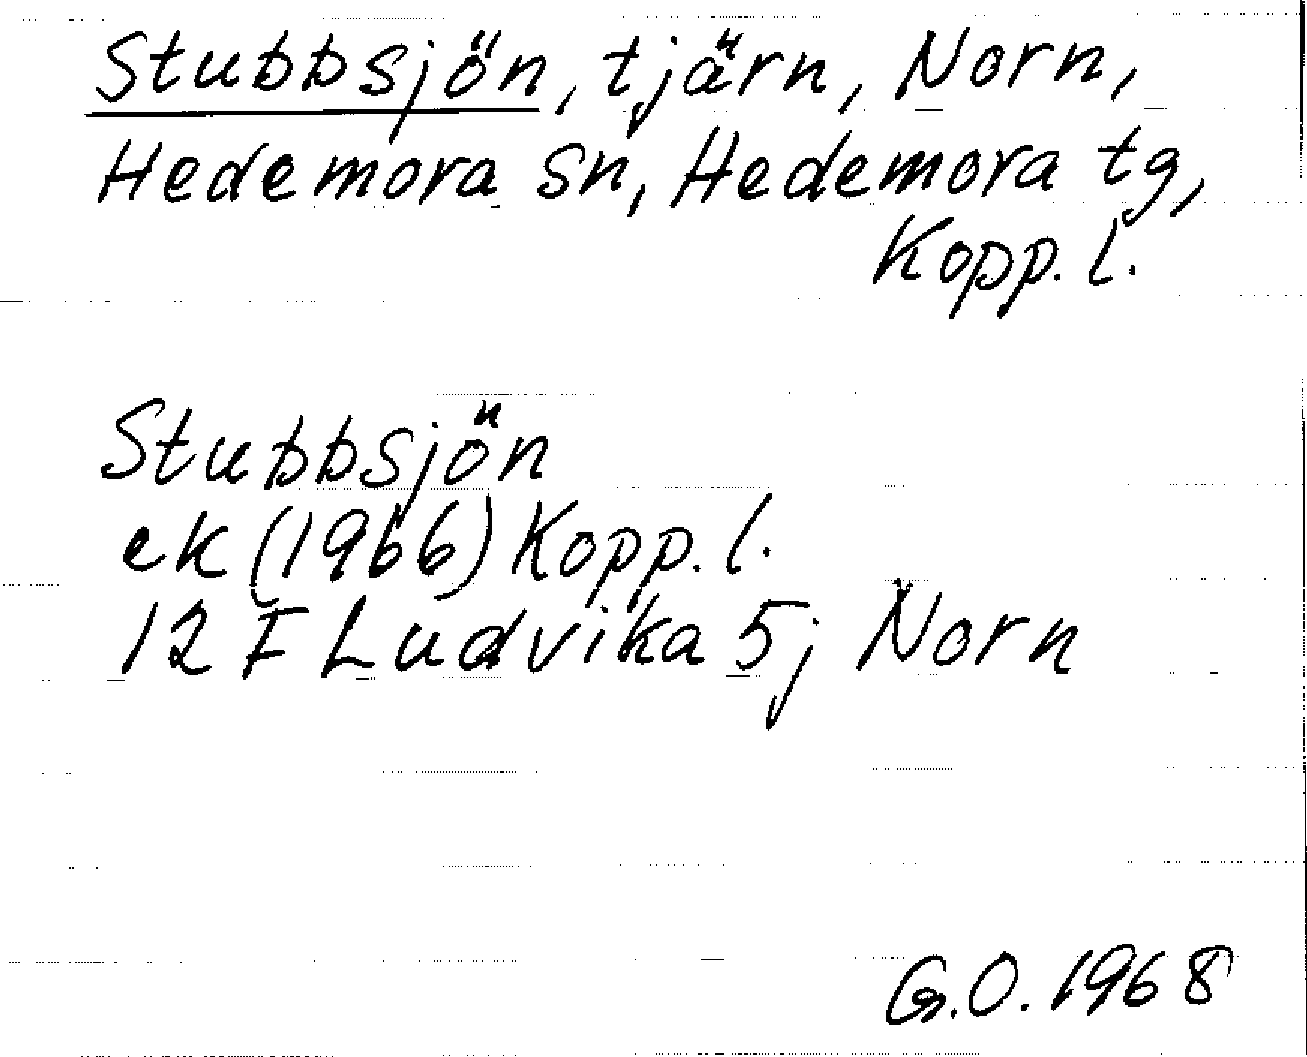 Stubbsjön, tjärn, Norn,
Hedemora sn, Hedemora tg,
Kopp. l.
Stubbsjön
ek (1966) Kopp. l.
12 F Ludvika 5j Norn
G.O. 1968